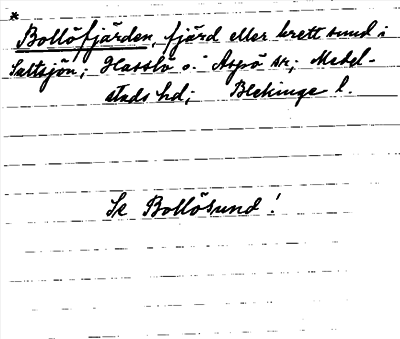 *
Bollöfjärden, fjärd eller brett sund i
Saltsjön; Hasslö o. Aspö sr; Medel-
stads hd; Blekinge l.
Se Bollösund!